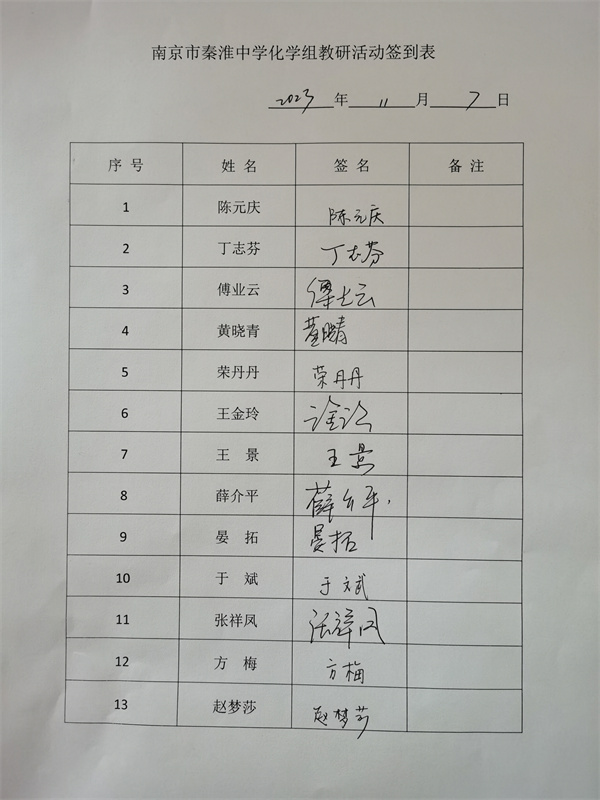 南京市秦淮中学化学组教研活动签到表
2023 年 11 月 7 日
序 号 姓 名 签 名 备 注
1 陈元庆 陈元庆
2 丁志芬 丁志芬
3 傅业云 傅业云
4 黄晓青 黄晓青
5 荣丹丹 荣丹丹
6 王金玲 王金玲
7 王 景 王景
8 薛介平 薛介平
9 晏 拓 晏拓
10 于 斌 于斌
11 张祥凤 张祥凤
12 方 梅 方梅
13 赵梦莎 赵梦莎